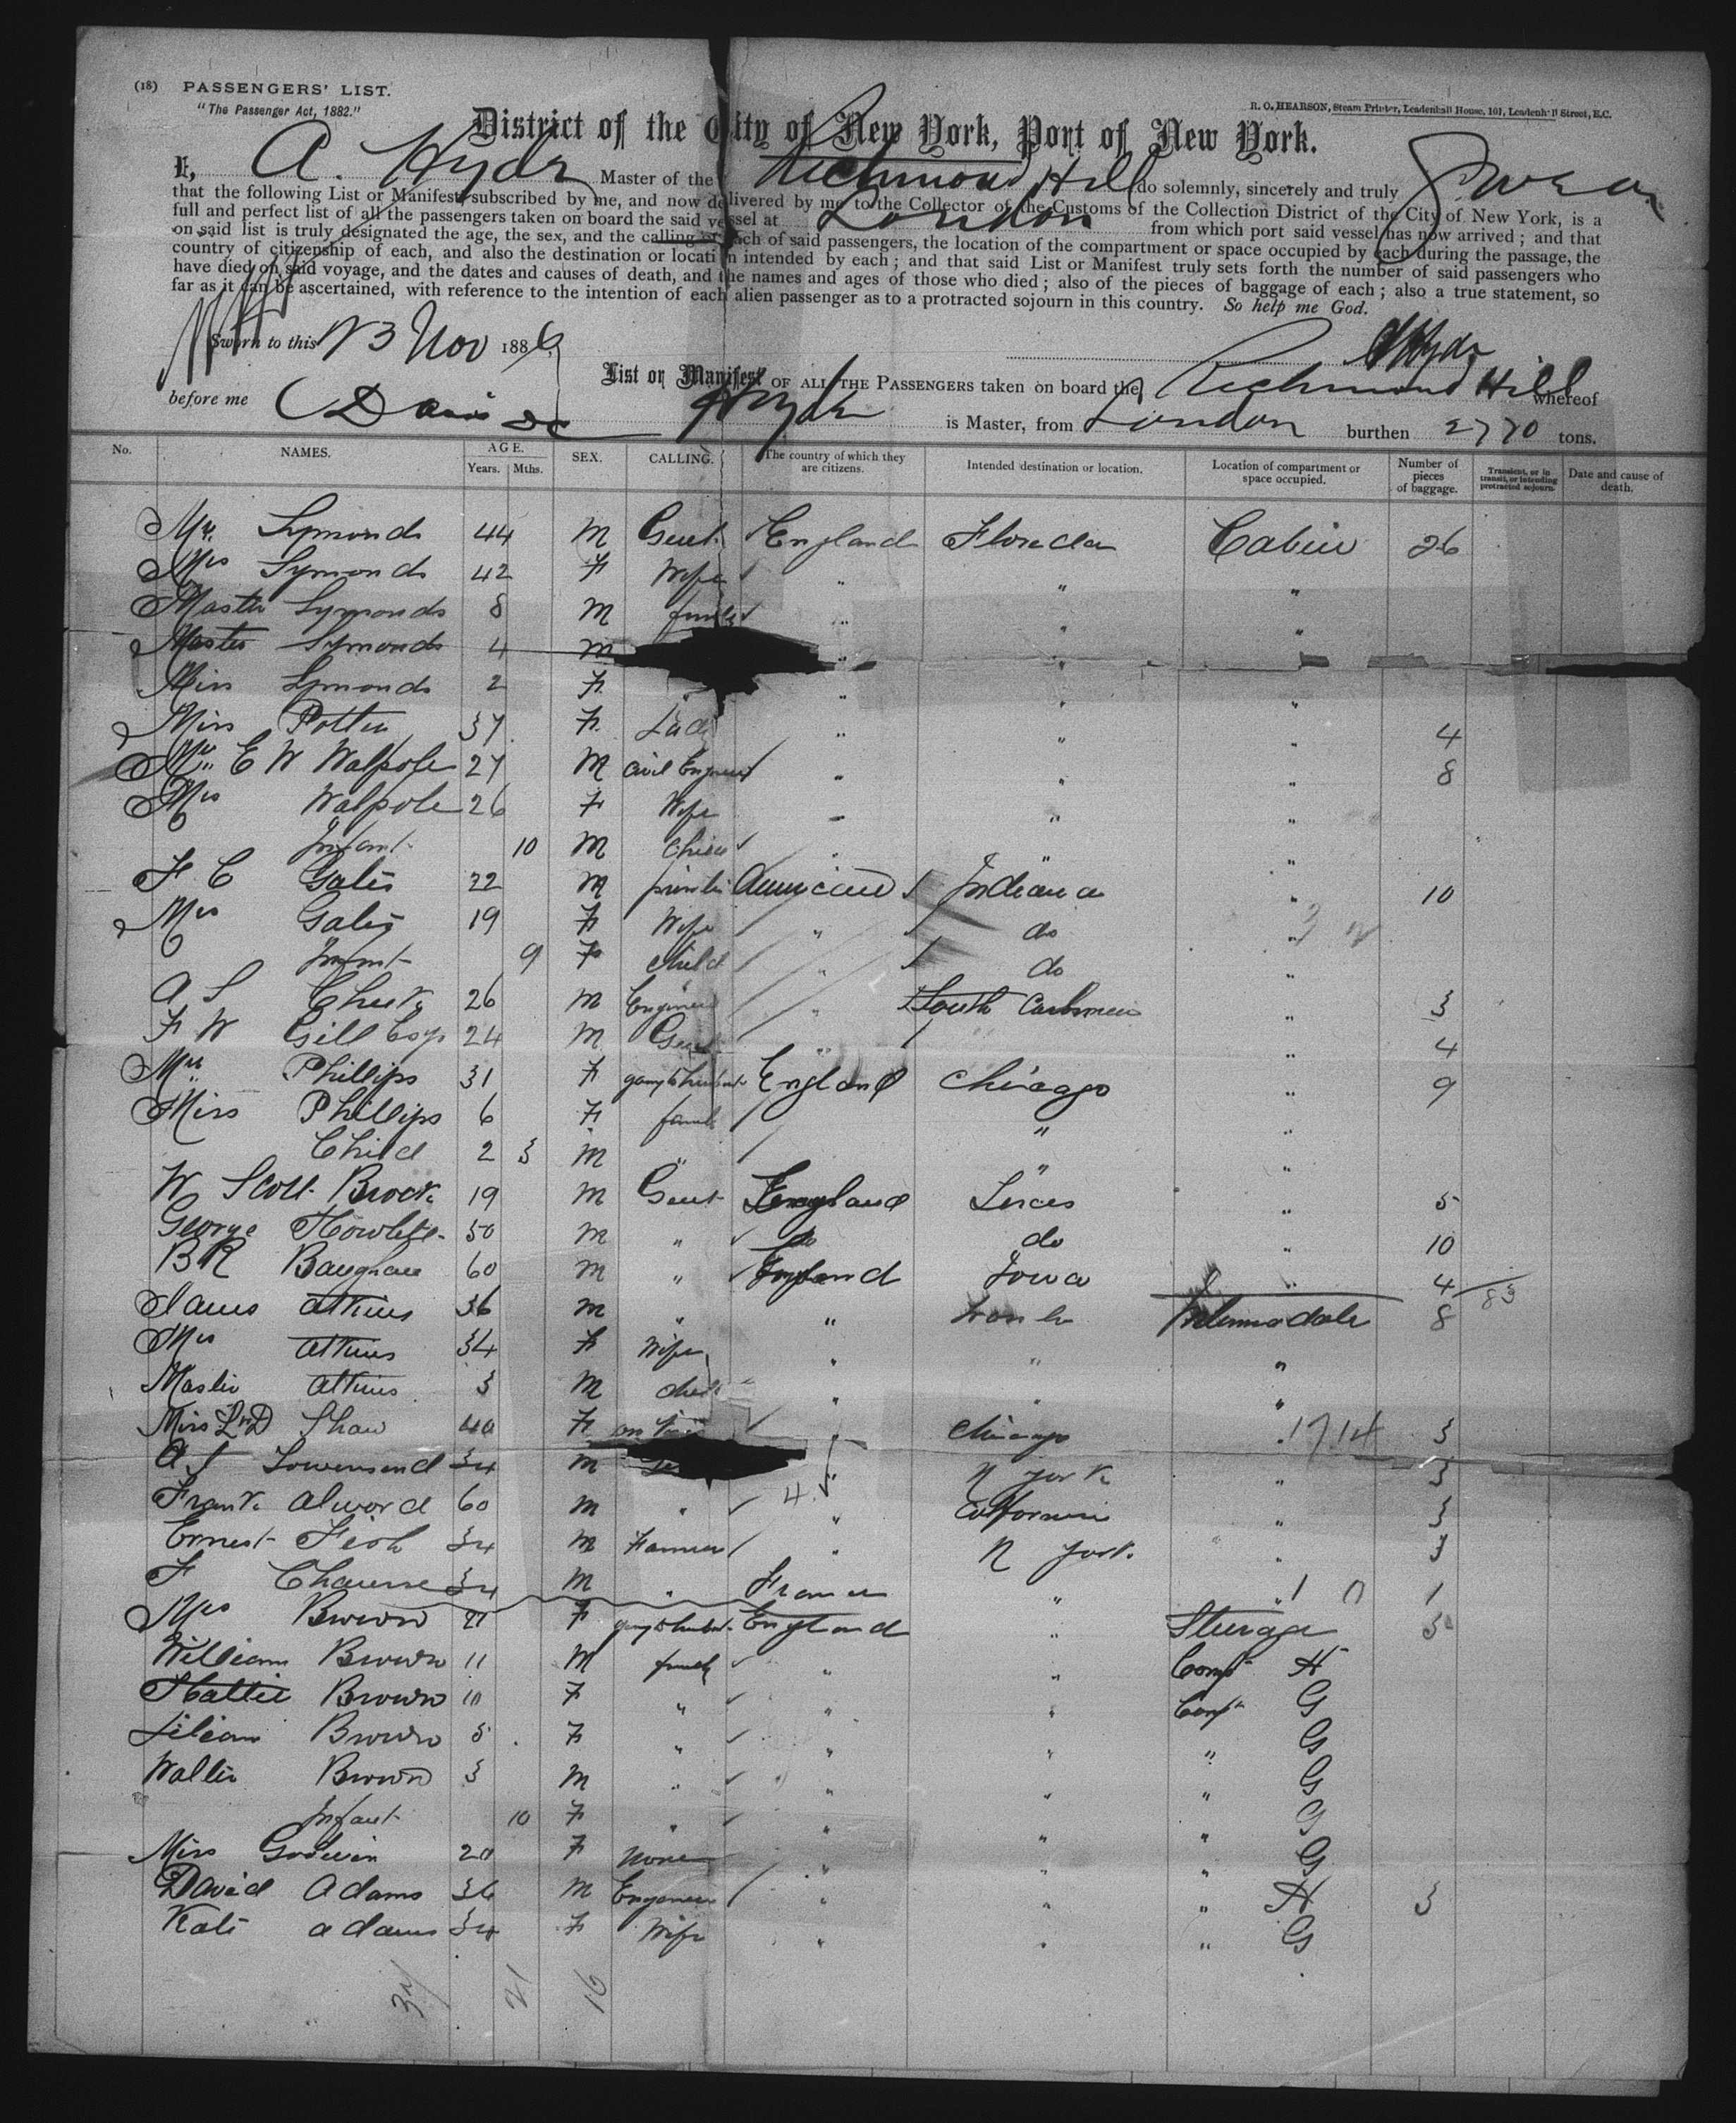 (18) PASSENGERS' LIST.
"The Passenger Act, 1882."
R. O. HEARSON, Steam Printer, Leadenhall House, 101, Leadenhall Street, E.C.
District of the City of New York, Port of New York.
I, A. Hyde Master of the Richmond Hill do solemnly, sincerely and truly Swear
that the following List or Manifest, subscribed by me, and now delivered by me to the Collector of the Customs of the Collection District of the City of New York, is a
full and perfect list of all the passengers taken on board the said vessel at London from which port said vessel has now arrived; and that
on said list is truly designated the age, the sex, and the calling of each of said passengers, the location of the compartment or space occupied by each during the passage, the
country of citizenship of each, and also the destination or location intended by each; and that said List or Manifest truly sets forth the number of said passengers who
have died on said voyage, and the dates and causes of death, and the names and ages of those who died; also of the pieces of baggage of each; also a true statement, so
far as it can be ascertained, with reference to the intention of each alien passenger as to a protracted sojourn in this country. So help me God.
Sworn to this 13 Nov 1886 A Hyde
before me Davis
List or Manifest OF ALL THE PASSENGERS taken on board the Richmond Hill whereof
A Hyde is Master, from London burthen 2770 tons.
No. NAMES. AGE. Years. Mths. SEX. CALLING. The country of which they are citizens. Intended destination or location. Location of compartment or space occupied. Number of pieces of baggage. Transient, or in transit, or intending protracted sojourn. Date and cause of death.
Mr. Symonds 44 M Gent England Florida Cabin 26
Mrs Symonds 42 F Wife " " "
Master Symonds 8 M family " " "
Master Symonds 4 M " " "
Miss Symonds 2 F " " " "
Miss Potter 37 F Lady " " " 4
Mr E W Walpole 27 M Civil Engineer " " " 8
Mrs Walpole 26 F Wife " " "
Infant 10 M Child " " "
F C Gates 22 M printer American Indiana " 10
Mrs Gates 19 F Wife " do "
Infant 9 F Child " do "
A S 26 M Engineer " South " 3
F W Gill Esq 24 M Gent " " 4
Mrs Phillips 31 F going to husband England Chicago " 9
Miss Phillips 6 F family " "
Child 2 3 M " " "
W Scott Brock 19 M Gent England " 5
George Howlett 50 M " do do " 10
B R 60 M " England Iowa " 4 83
James Atkins 36 M " " Intermediate 8
Mrs Atkins 34 F Wife " " "
Master Atkins 3 M child " " "
Miss Shaw 40 F " Chicago " 1714 3
A J Townsend 34 M " N York " 3
Frank Alvord 60 M " " California " 3
Ernest Fish 34 M Farmer " N York " 3
F 34 M " France " " 1
Mrs Brown F going to husband England " Sturage 5
William Brown 11 M family " " Compt H
Hattie Brown 10 F " " " Compt G
Lilian Brown 5 F " " " " G
Walter Brown 3 M " " " " G
Infant 10 F " " " " G
Miss Godwin 20 F None " " " G
David Adams 36 M Engineer " " " H 3
Kate Adams 34 F Wife " " " G
37 21 16